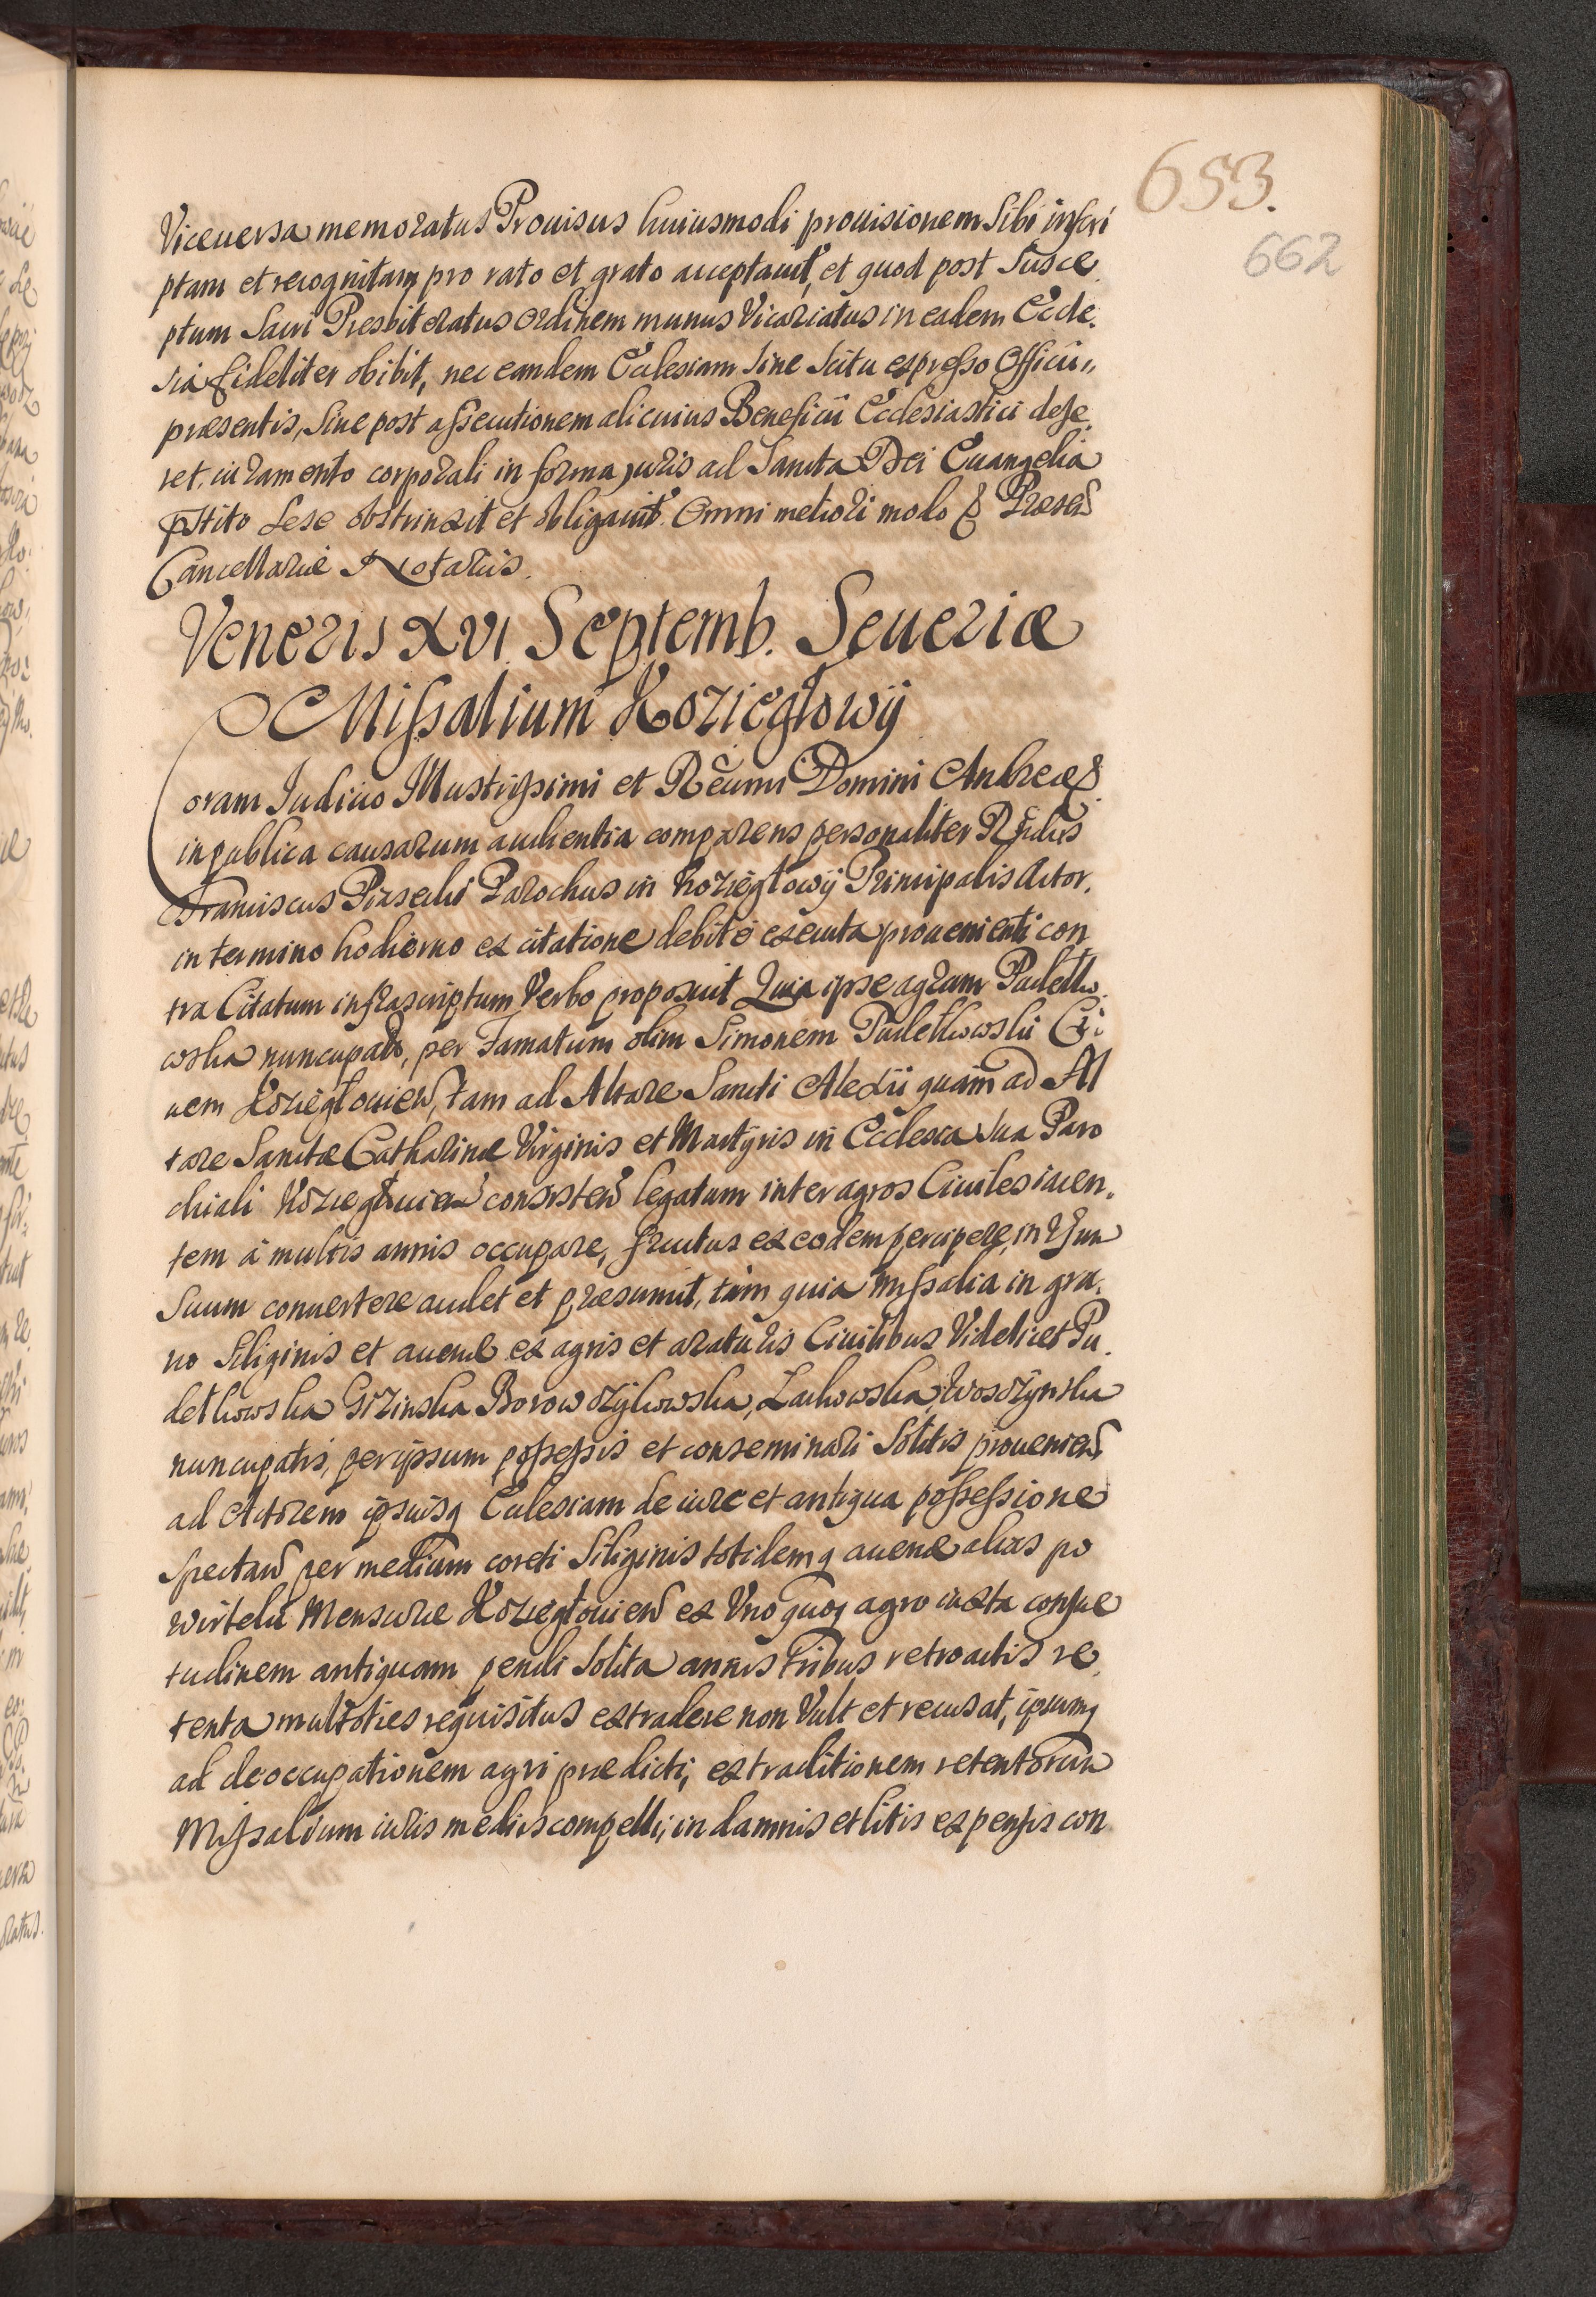 653.
662
Viceuersa memoratus Prouisus huiusmodi prouisionem Sibi inscri
ptam et recognitam pro rato et grato acceptauit, et quod post Susce
ptum Sacri Presbiteratus Ordinem munus Vicariatus in eadem Eccle.
sia fideliter obibit, nec eandem Ecclesiam Sine Scitu expresso Officii
præsentis, Siue post assecutionem alicuius Beneficii Ecclesiastici dese
ret. iuramento corporali in forma juris ad Sancta Dei Euangelia
pstito Sese obstrinxit et obligauit. Omni meliori modo & Præsen
Cancellariæ Notariis.
Veneris XVI Septemb. Seueriæ
Missalium Kozieglowÿ
Coram Iudicio Illustrissimi et Reumi Domini Andreæ &
in publica causarum audientia comparens personaliter Rndus
Franciscus Piasecki Parochus in Kozieglowÿ Principalis Actor,
in termino hodierno ex citatione debitè executa prouenienti con
tra Citatum infrascriptum Verbo proposuit Quia ipse agrum Pudelko
wska nuncupatū, per Famatum olim Simonem Pudelkowski Ci:
uem Kozieglouien, tam ad Altare Sancti Alexii quàm ad Al
tare Sanctæ Catharinæ Virginis et Martÿris in Ecclesia sua Paro
chiali Kozieglouien consisten legatum inter agros Ciuiles iacen,
tem à multis annis occupare, fructus ex eodem percipere, in Vsum
Suum conuertere audet et præsumit, tùm quia missalia in gra,
no Siliginis et auenæ ex agris et araturis Ciuilibus Videlicet Pu.
delkowska Gizinska Borowczÿkowska, Lachowska, Woszczÿnska
nuncupatis, per ipsum possessis et conseminari Solitis prouenien
ad Actorem ipsiusq Ecclesiam de iure et antiqua possessione
Spectan per medium coreti Siliginis totidemq auenæ alias po
wiertelu Mensuræ Kozieglouien ex Vnoquoq agro iuxta consue
tudinem antiquam pendi Solita annis tribus retroactis re
tenta multoties requisitus extradere non Vult et recusat, ipsumq
ad deoccupationem agri prædicti, extraditionem retentorum
Missalium iuris mediis compelli, in damnis et litis expensis con